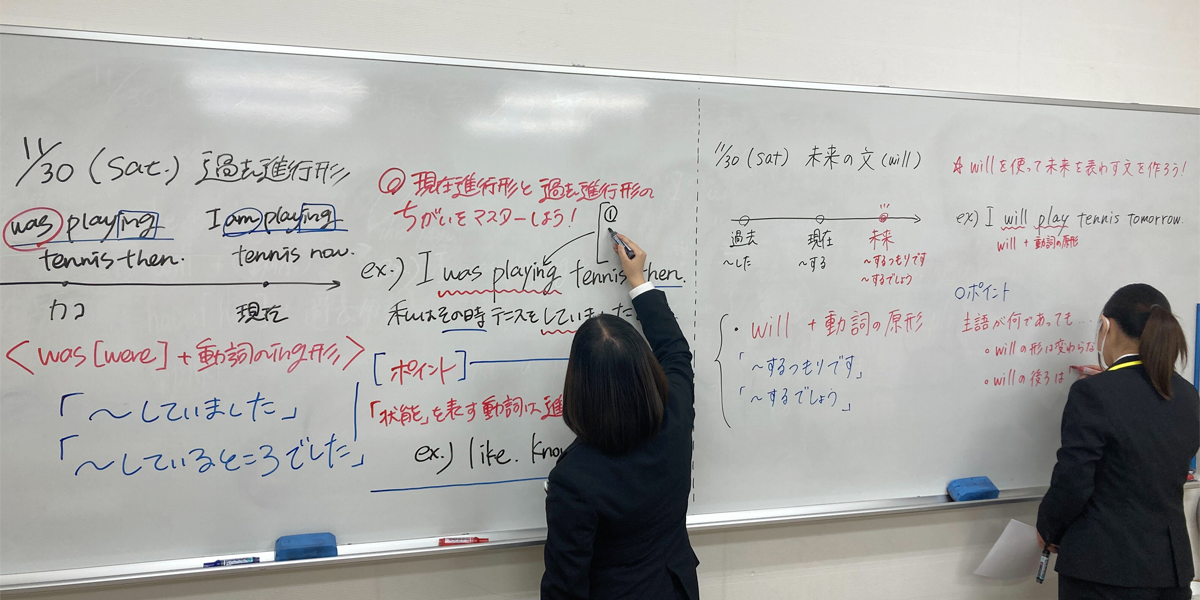 11/30 (Sat.) 過去進行形
was playing
tennis then.
I am playing
tennis now.
カコ
現在
<was [were] + 動詞のing形>
「～していました」
「～しているところでした」
◎ 現在進行形と過去進行形の
ちがいをマスターしよう!
①
ex.) I was playing tennis then.
私はその時テニスをしていました
[ポイント]
「状態」を表す動詞は進
ex.) like. know
11/30 (sat) 未来の文 (will)
過去
～した
現在
～する
未来
～するつもりです
～するでしょう
・will + 動詞の原形
「～するつもりです」
「～するでしょう」
☆ willを使って未来を表わす文を作ろう!
ex) I will play tennis tomorrow.
will + 動詞の原形
○ポイント
主語が何であっても…
。willの形は変わらな
。willの後ろは